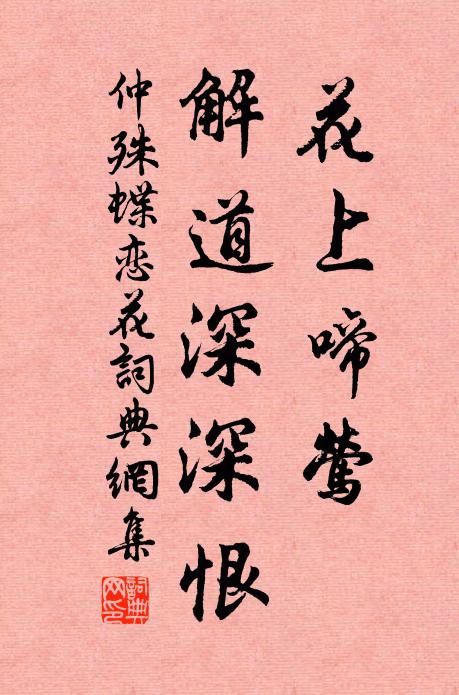 花上啼鶯
解道深深恨
仲殊蝶恋花詞典網集
詞典网印